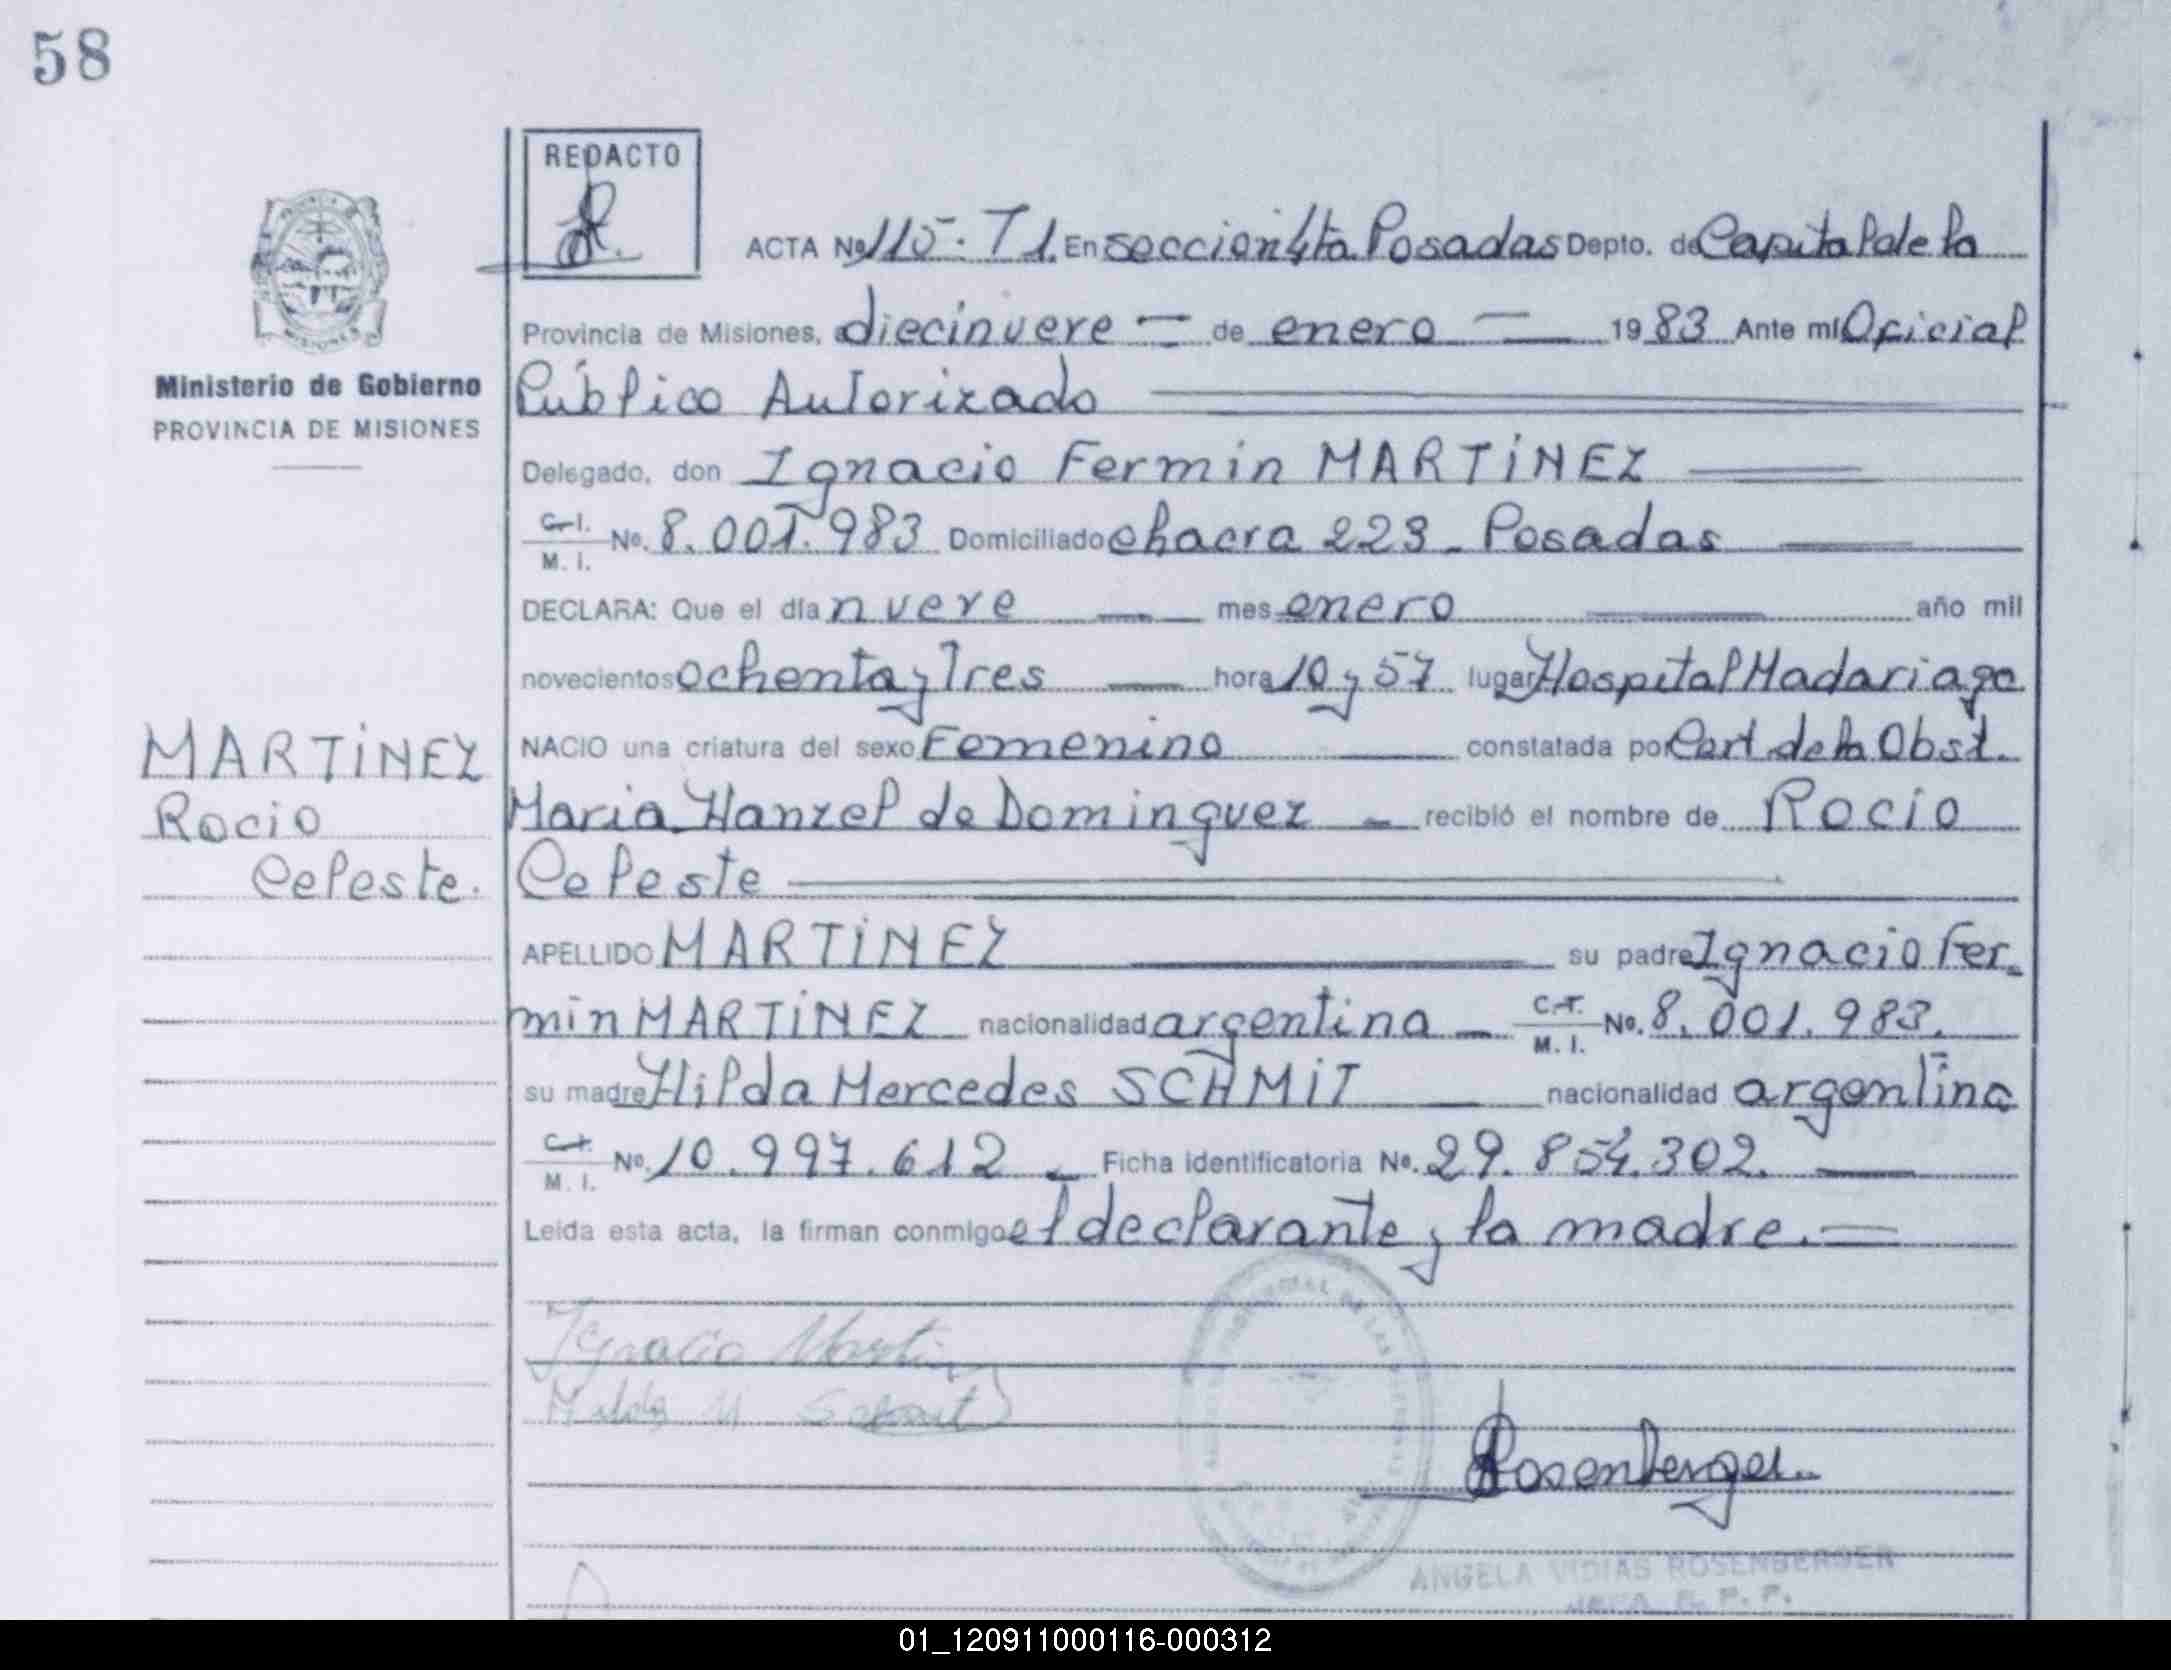 58
REDACTO
ACTA Nº 115 - T1. En seccion 4ta. Posadas Depto. de Capital de la
Provincia de Misiones, a diecinueve = de enero = 1983 Ante mí Oficial
Público Autorizado
Ministerio de Gobierno
PROVINCIA DE MISIONES
Delegado, don Ignacio Fermin MARTINEZ
C.I. M.I. No. 8.001.983 Domiciliado chacra 223 - Posadas
DECLARA: Que el día nueve mes enero año mil
novecientos ochenta y Tres hora 10 y 57 lugar Hospital Madariaga
NACIO una criatura del sexo Femenino constatada por Cert. de la Obst.
Maria Hanzel de Dominguez - recibió el nombre de Rocio
Celeste
MARTINEZ
Rocio
Celeste.
APELLIDO MARTINEZ su padre Ignacio Fer-
min MARTINEZ nacionalidad argentina - C.I. M.I. No. 8.001.983.
su madre Hilda Mercedes SCHMIT nacionalidad argentina
C.I. M.I. No. 10.997.612 - Ficha identificatoria No. 29.854.302.
Leída esta acta, la firman conmigo el declarante y la madre. =
Ignacio Martin
Hilda M Schmit
Rosenberger
ANGELA VIDIAS ROSENBERGER
JEFA R. P. P.
01_120911000116-000312